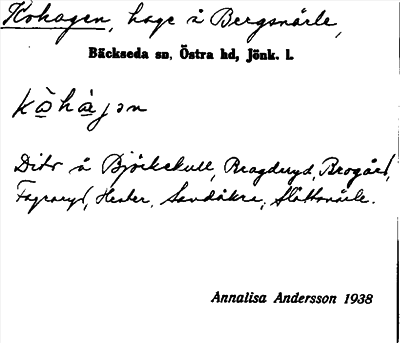 Kohagen, hage å Bergsnärle,
Bäckseda sn, Östra hd, Jönk. l.
kòhàjən
Dito å Björkekull, Bragderyd, Brogård,
Fagraryd, Hester, Sandåkra, Slättanärle.
Annalisa Andersson 1938